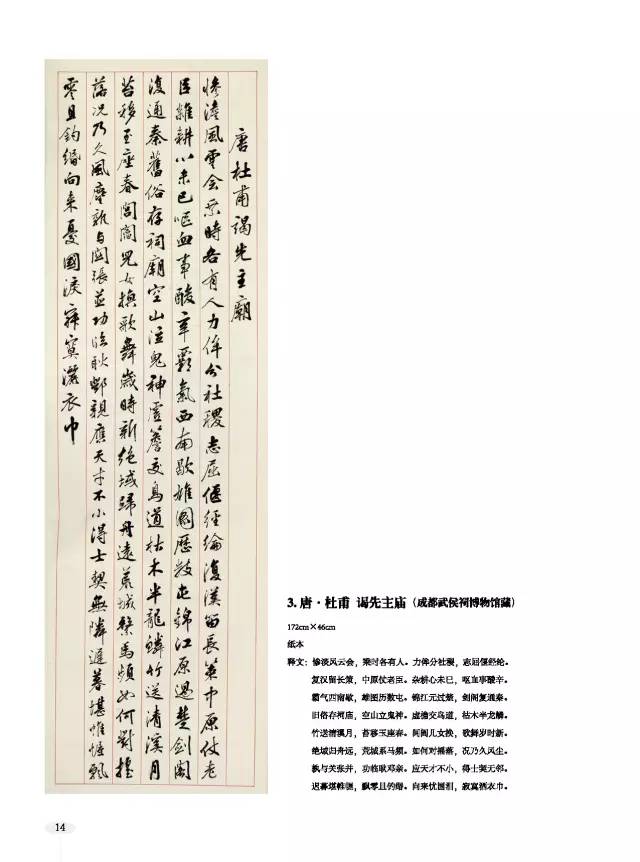 唐杜甫謁先主廟
惨澹風雲会乘時各有人力侔分社稷志屈偃經綸復漢留長策中原仗老
臣雜耕心未已呕血事酸辛霸氣西南歇雄圖歷數屯錦江原過楚劍閣
復通秦舊俗存祠廟空山泣鬼神虛簷交鳥道枯木半龍鱗竹送清溪月
苔移玉座春閭閻兒女換歌舞歲時新絶域歸舟遠荒城繫馬頻如何對摇
落况乃久風塵孰與関張並功臨耿鄧親應天才不小得士契無隣遲暮堪帷幄飄
零且釣緡向来憂國淚寂寞灑衣巾
3.唐·杜甫 谒先主庙（成都武侯祠博物馆藏）
172cm×46cm
纸本
释文：惨淡风云会，乘时各有人。力侔分社稷，志屈偃经纶。
复汉留长策，中原仗老臣。杂耕心未已，呕血事酸辛。
霸气西南歇，雄图历数屯。锦江元过楚，剑阁复通秦。
旧俗存祠庙，空山立鬼神。虚檐交鸟道，枯木半龙鳞。
竹送清溪月，苔移玉座春。闾阎儿女换，歌舞岁时新。
绝域归舟远，荒城系马频。如何对摇落，况乃久风尘。
孰与关张并，功临耿邓亲。应天才不小，得士契无邻。
迟暮堪帷幄，飘零且钓缗。向来忧国泪，寂寞洒衣巾。
14